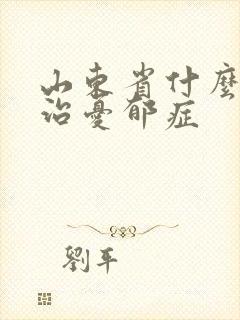 山东省什麼
治憂郁症
劉平